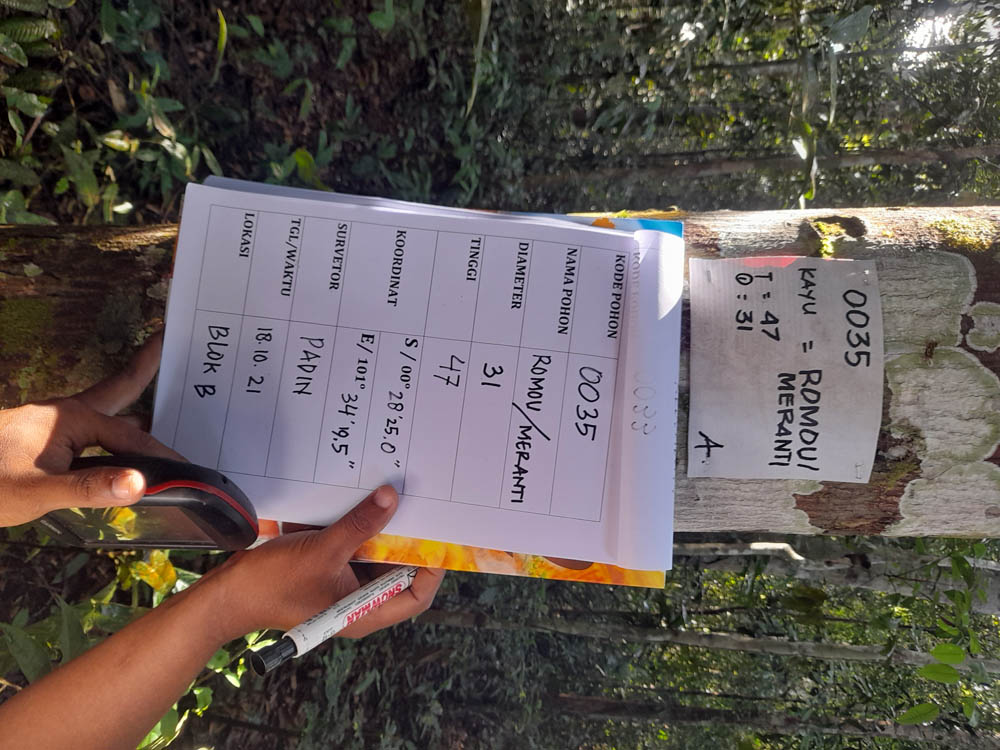 0035
KAYU = ROMOU/
MERANTI
T = 47
O : 31
A.
KODE POHON 0033
KODE POHON 0035
NAMA POHON ROMOU/MERANTI
DIAMETER 31
TINGGI 47
KOORDINAT S / 00° 28'25.0"
E/ 101° 34'19.5"
SURVETOR PADIN
TGL/WAKTU 18.10.21
LOKASI BLOK B
SNOWMAN